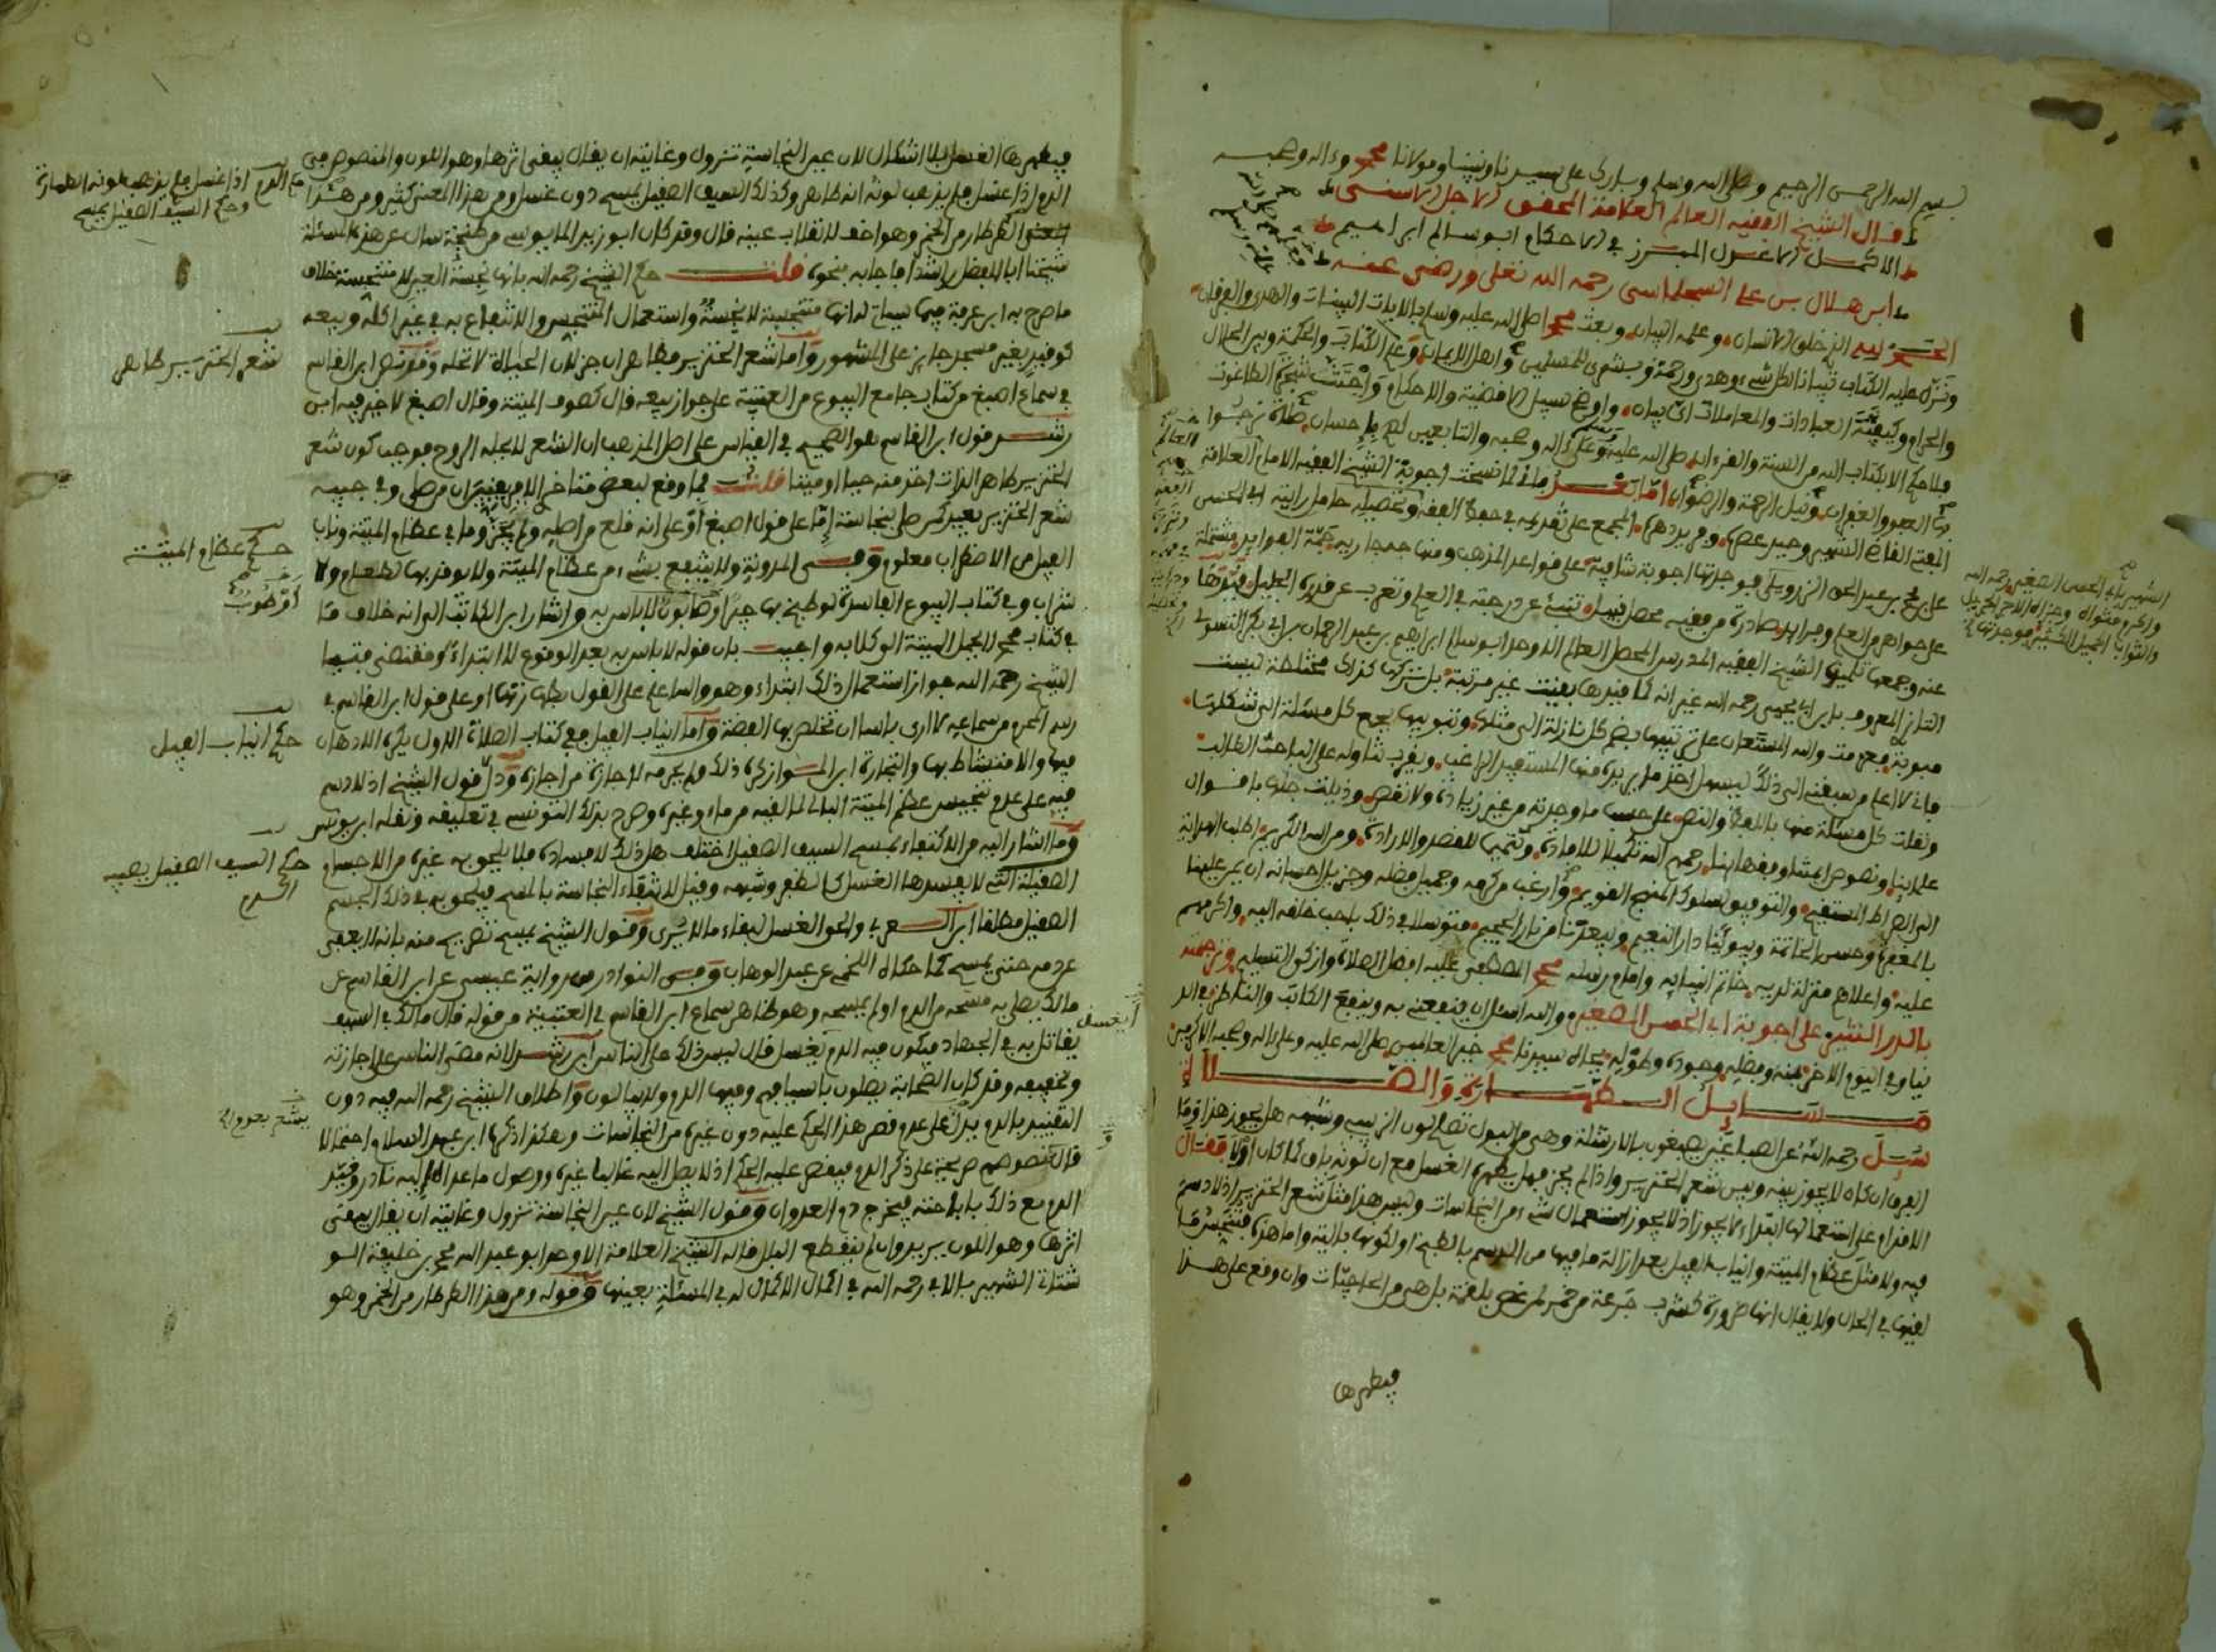 بسم الله الرحمن الرحيم وصلى الله وسلم وبارك على سيدنا ونبينا ومولانا محمد وءاله وصحبه
قال الشيخ الفقيه العالم العلامة المحقق الاجل الاسنى
الاكمل المبرز في الاحكام ابو سالم ابراهيم
ابن هلال بن علي السجلماسي رحمه الله تعلى ورضي عنه
الحمد لله الذي خلق الانسان وعلمه البيان وبعث محمدا صلى الله عليه وسلم بالايات البينات والهدى والفرقان
ونزل عليه الكتاب تبيانا لكل شيء وهدى ورحمة وبشرى للمسلمين واهل الايمان وعلم الكتاب والحكمة وبين الحلال
والحرام وكيفية العبادات والمعاملات اي بيان واوضح سبل الاقضية والاحكام واجتثت شجرة الطاغوت
صلى الله عليه وعلى ءاله وصحبه والتابعين لهم بإحسان صلاة نرجوا
بها العفو والغفران ونيل الرحمة والرضوان اما بعد فاني لما نسخت اجوبة الشيخ الفقيه الامام العلامة
المفتي القاضي الشهير وحيد عصره وفريد دهره المجمع على تقديمه في حفظ الفقه وتحصيله حامل رايته ابي الحسن
علي بن محمد بن عبد الحق الزرويلي فوجدتها اجوبة شافية على قواعد المذهب ومنها حمة الفوايد مشتملة
على جواهر من العلم وفرايد صادرة من فقيه محصل نبيل تنبئ عن درجته في العلم وتعرب عن قدره الجليل قيدها
عنه وجمعها تلميذه الشيخ الفقيه المدرس المحصل العالم الاوحد ابو سالم ابراهيم بن عبد الرحمان بن ابي بكر التسولي
التازي المعروف بابن ابي يحيى رحمه الله غير انه لما قيدها بقيت غير مرتبة بل تركها كذلك مختلطة ليست
مبوبة فعزمت والله المستعان على ترتيبها بضم كل نازلة الى مثلها وتبويبها بجمع كل مسئلة الى شكلها
فاني لا اعلم من سبقني الى ذلك ليسهل اخذ ما يريده منها المستفيد الراغب ويقرب تناوله على الباحث الطالب
ونقلت كل مسئلة منها باللفظ والنص على حسب ما وجدته من غير زيادة ولا نقص وذيلت جلها باقوال
علمائنا ونصوص ايمتنا وفقهائنا رحمهم الله تكميلا للافادة وتتميما للقصد والارادة ومن الله الكريم اطلب الهداية
الى الصراط المستقيم والتوفيق لسلوك المنهج القويم وارغب من كرمه وجميل فضله وجزيل احسانه ان يمن علينا
بالمغفرة وحسن الخاتمة ويبوئنا دار النعيم ويبعدنا من نار الجحيم متوسلا في ذلك باحب خلقه اليه واكرمهم
عليه واعلاهم منزلة لديه خاتم انبيايه وامام رسله محمد المصطفى عليه افضل الصلاة وازكى التسليم وترجمته
بالدر النثير على اجوبة ابي الحسن الصغير والله اسئل ان ينفعني به وينفع الكاتب والناظر في الد
نيا وفي اليوم الاخر بمنه وفضله وجوده وطوله بجاه سيدنا محمد خير العالمين صلى الله عليه وعلى ءاله وصحبه الاكرمين
مسايل الطهارة والصلاة
سئل رحمه الله عن الصباغين يصبغون بالارشلة وهي من البول تصلح للون الزبيب وشبهه هل يجوز هذا وما
الفرق ان كان لا يجوز بينه وبين شعر الخنزير واذا لم يجز فهل يطهره الغسل مع ان لونه باق كما كان اولا فقال
الاقدام على استعمالها ابتداء لا يجوز اذ لا يجوز استعمال شيء من النجاسات وليس هذا مثل شعر الخنزير اذ لا دسم
فيه ولا مثل عظام الميتة وانياب الفيل بعد ازالة ما فيها من الدسم بالطبخ او لكونها بالية واما هذه فنجس
لعينها في الحال ولا يقال انها ضرورة كشرب جرعة من خمر لمن غص بلقمة بل هي من الحاجيات وان وقع على هذا
فيطهرها
الشهير بابي الحسن الصغير رحمه الله
واكرم مثواه وجزاه الاجر الجزيل
والثواب الجميل الكثير فوجدتها
فيطهرها الغسل بلا اشكال لان عين النجاسة تزول وغايته ان يقال يبقى اثرها وهو اللون والمنصوص في
الدم اذا غسل فلم يذهب لونه انه طاهر وكذلك السيف الصقيل يمسح دون غسل ومن هذا المعنى كثير ومن هذا
المعنى الطرطار من الخمر وهو اخف لانقلاب عينه قال وقد كان ابو زيد من طنجة سال عن هذه المسئلة
شيخنا ابا الفضل راشدا فاجابه بنحوه قلت حكم الشيخ رحمه الله بانها نجسة العين لا متنجسة خلاف
ما صرح به ابن عرفة فيها سياتي انها متنجسة لا نجسة واستعمال المتنجس والانتفاع به في غير اكله وبيعه
كوقيد بغير مسجد جايز على المشهور واما شعر الخنزير فطاهر ان جز لان الحياة لا تحله وقول ابن القاسم
في سماع اصبغ من كتاب جامع البيوع من العتبية على جواز بيعه قال كصوف الميتة وقال اصبغ لا خير فيه ابن
رشد قول ابن القاسم هو الصحيح في القياس على اصل المذهب ان الشعر لا تحله الروح فوجب كون شعر
الخنزير طاهر الذات اخذ منه حيا او ميتا قلت فما وقع لبعض متاخري الافريقيين ان من صلى وفي جيبه
شعر الخنزير يعيد كمن صلى بنجاسة إما على قول اصبغ أو على انه قلع من اصله ولم يجز وما في عظام الميتة وناب
الفيل من الاضطراب معلوم وفي المدونة ولا ينتفع بشيء من عظام الميتة ولا يوقد بها لطعام ولا
شراب وفي كتاب البيوع الفاسدة لو طبخ بها جير او طوب لا باس به واشار ابن الكاتب الى انه خلاف ما
في كتاب محمد لا يحمل الميتة الى كلابه واجيب بان قوله لا باس به بعد الوقوع لا ابتداء ومقتضى فتيا
الشيخ رحمه الله جواز استعمال ذلك ابتداء وهو والله اعلم على القول بطهارتها او على قول ابن القاسم في
رسم المحرم من سماعه لا ارى باسا ان تخلص بها الفضة واما انياب الفيل ففي كتاب الصلاة الاول يكره الادهان
فيها والامتشاط بها والتجارة ابن المواز كره ذلك ولم يحرمه لإجازة من اجازه ودل قول الشيخ اذ لا دسم
فيه على عدم تنجيس عظم الميتة البالي لما لقيه من ماء وغيره وصرح بذلك التونسي في تعليقه ونقله ابن يونس
وما اشار اليه من الاكتفاء بمسح السيف الصقيل اختلف هل ذلك لافساده فلا يلحق به غيره من الاجسام
الصقيلة التي لا يفسدها الغسل كالظفر وشبهه وقيل لانتفاء النجاسة بالمسح فيلحق به في ذلك الجسم
الصقيل مطلقا ابن العربي والحق الغسل لبقاء ما لا يرى وقول الشيخ يمسح تصريح منه بانه لا يعفى
عن دمه حتى يمسح كما حكاه اللخمي عن عبد الوهاب وفي النوادر من رواية عيسى عن ابن القاسم عن
مالك يصلي به مسحه من الدم او لم يمسحه وهو ظاهر سماع ابن القاسم في العتبية من قوله قال مالك في السيف
يقاتل به في الجهاد فيكون فيه الدم يغسل قال ليس ذلك على الناس ابن رشد لانه مضى الناس على اجازته
وتخفيفه وقد كان الصحابة يصلون باسيافهم وفيها الدم ولا يبالون واطلاق الشيخ رحمه الله فيه دون
التقييد بالدم يدل على عدم قصر هذا الحكم عليه دون غيره من النجاسات وهكذا ذكره ابن عبد السلام احتمالا
قال نصوصهم صريحة على ذكر الدم فيقصر عليه الحكم اذ لا يصل اليه غالبا غيره ووصول ما عداه اليه نادر وقيد
الدم مع ذلك باباحته فيخرج دم العدوان وقول الشيخ لان عين النجاسة تزول وغايته ان يقال يبقى
اثرها وهو اللون يريد وان لم ينقطع البلل قاله الشيخ العلامة الاوحد ابو عبد الله محمد بن خليفة الو
شتاتي الشهير بالابي رحمه الله في اكمال الاكمال له في المسئلة بعينها وقوله ومن هذا الطرطار من الخمر وهو
الدم اذا غسل فلم يذهب لونه الطهارة
وحكم السيف الصقيل يمسح
شعر الخنزير طاهر
حكم عظام الميتة
أو طوب
حكم انياب الفيل
حكم السيف الصقيل يصيبه
الدم
أيغسل